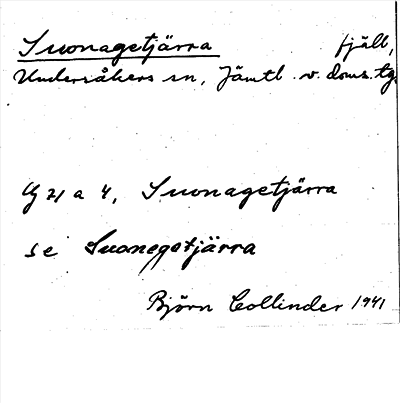 Suonagetjärra fjäll,
Undersåkers sn, Jämtl. v. doms. tg.
21 a 4, Suonagetjärra
se Suonegetjärra
Björn Collinder 1941